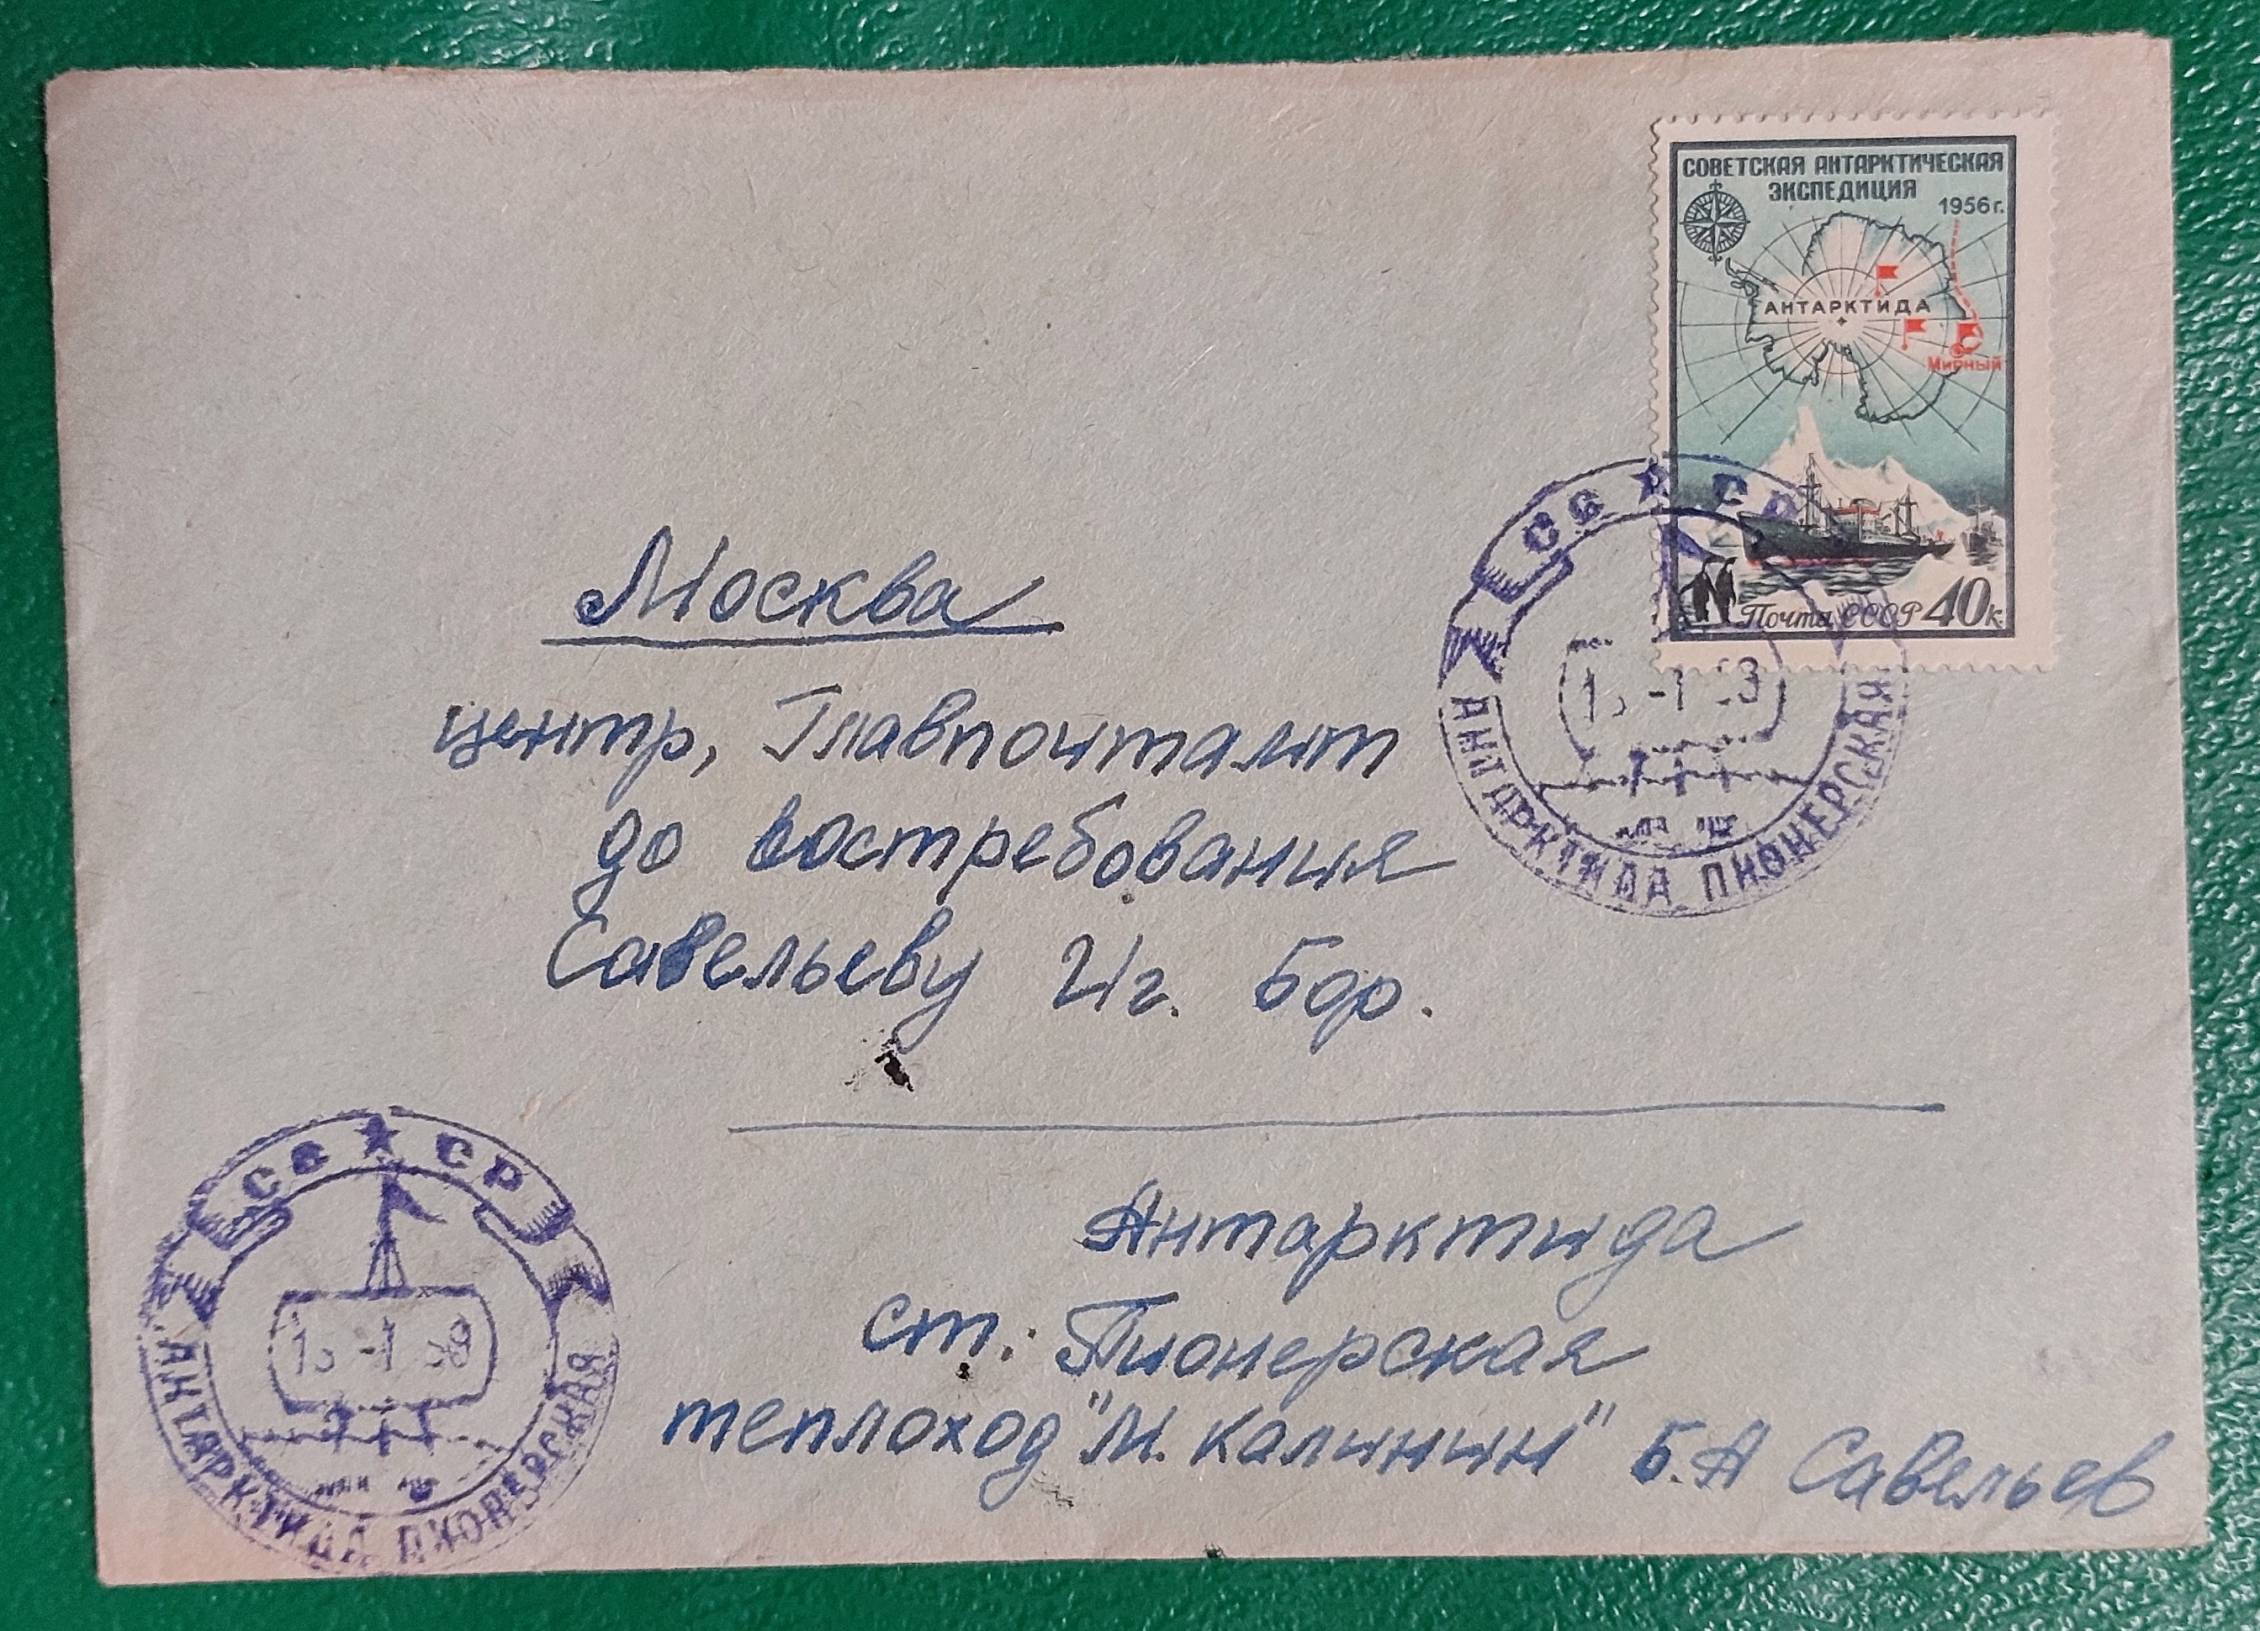 СОВЕТСКАЯ АНТАРКТИЧЕСКАЯ
ЭКСПЕДИЦИЯ
1956 г.
АНТАРКТИДА
Мирный
Почта СССР 40к.
СС СР
АНТАРКТИДА ПИОНЕРСКАЯ
Москва
центр, Главпочтамт
до востребования
Савельеву Иг. Бор.
Антарктида
ст. Пионерская
теплоход "М. Калинин" Б.А Савельев
СС СР
АНТАРКТИДА ПИОНЕРСКАЯ